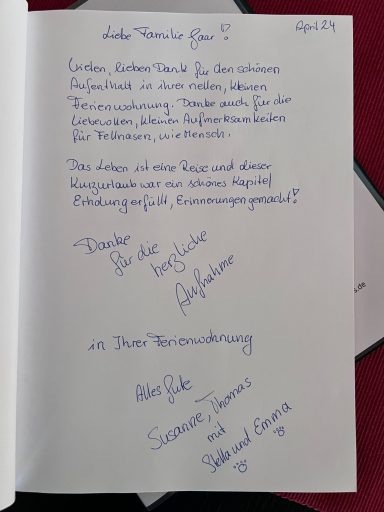 April 24
Liebe Familie Gaar!
Vielen, lieben Dank für den schönen
Aufenthalt in ihrer nellen, kleinen
Ferienwohnung. Danke auch für die
liebevollen, kleinen Aufmerksamkeiten
für Fellnasen, wie Mensch.
Das Leben ist eine Reise und dieser
Kurzurlaub war ein schönes Kapitel
Erholung erfüllt, Erinnerungen gemacht!
Danke
für die
herzliche
Aufnahme
in Ihrer Ferienwohnung
Alles Gute
Susanne, Thomas
mit
Stella und Emma
s.de